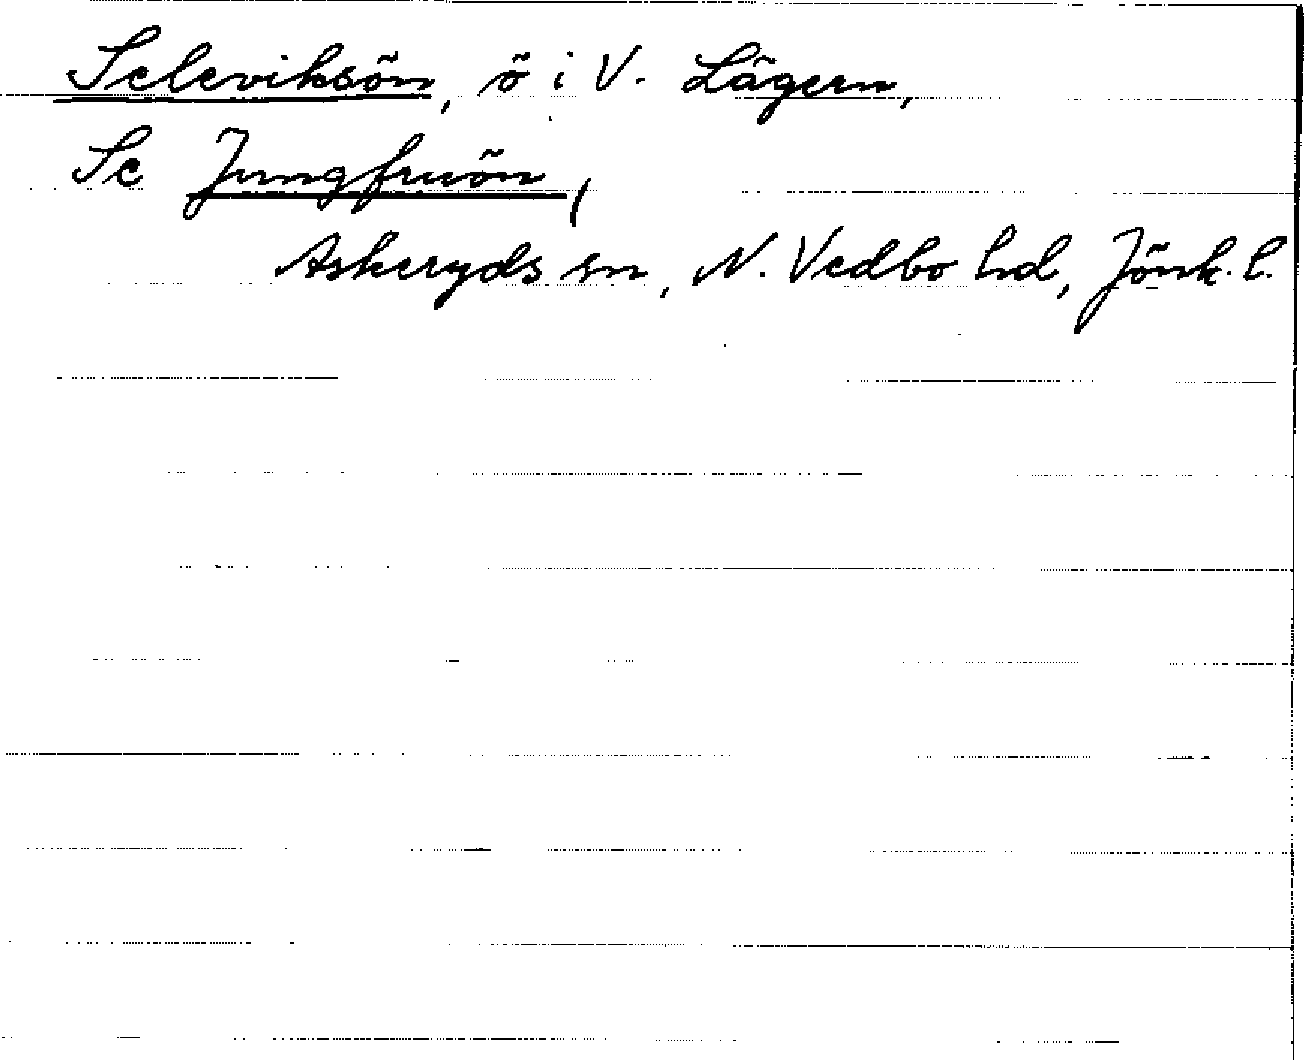 Seleviksön, ö i V. Lägern,
Se Jungfruön,
Askeryds sn, N. Vedbo hd, Jönk. l.